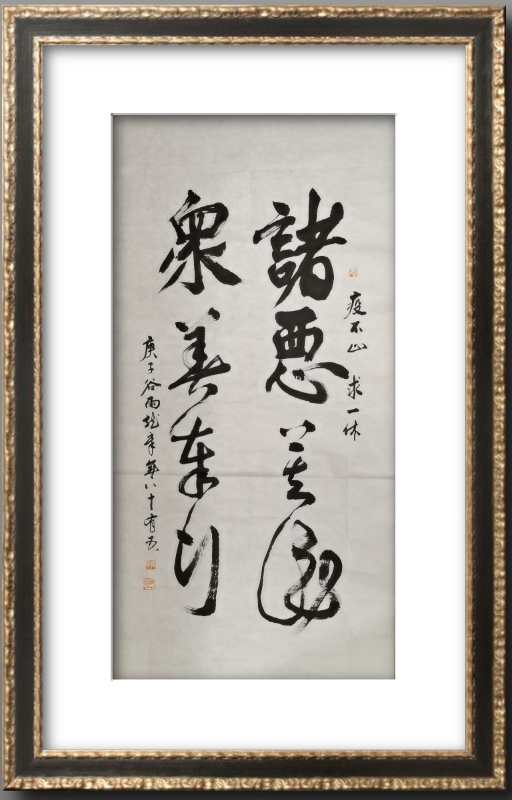 疫不止 求一休
諸悪莫作
衆善奉行
庚子谷雨 年八十有五